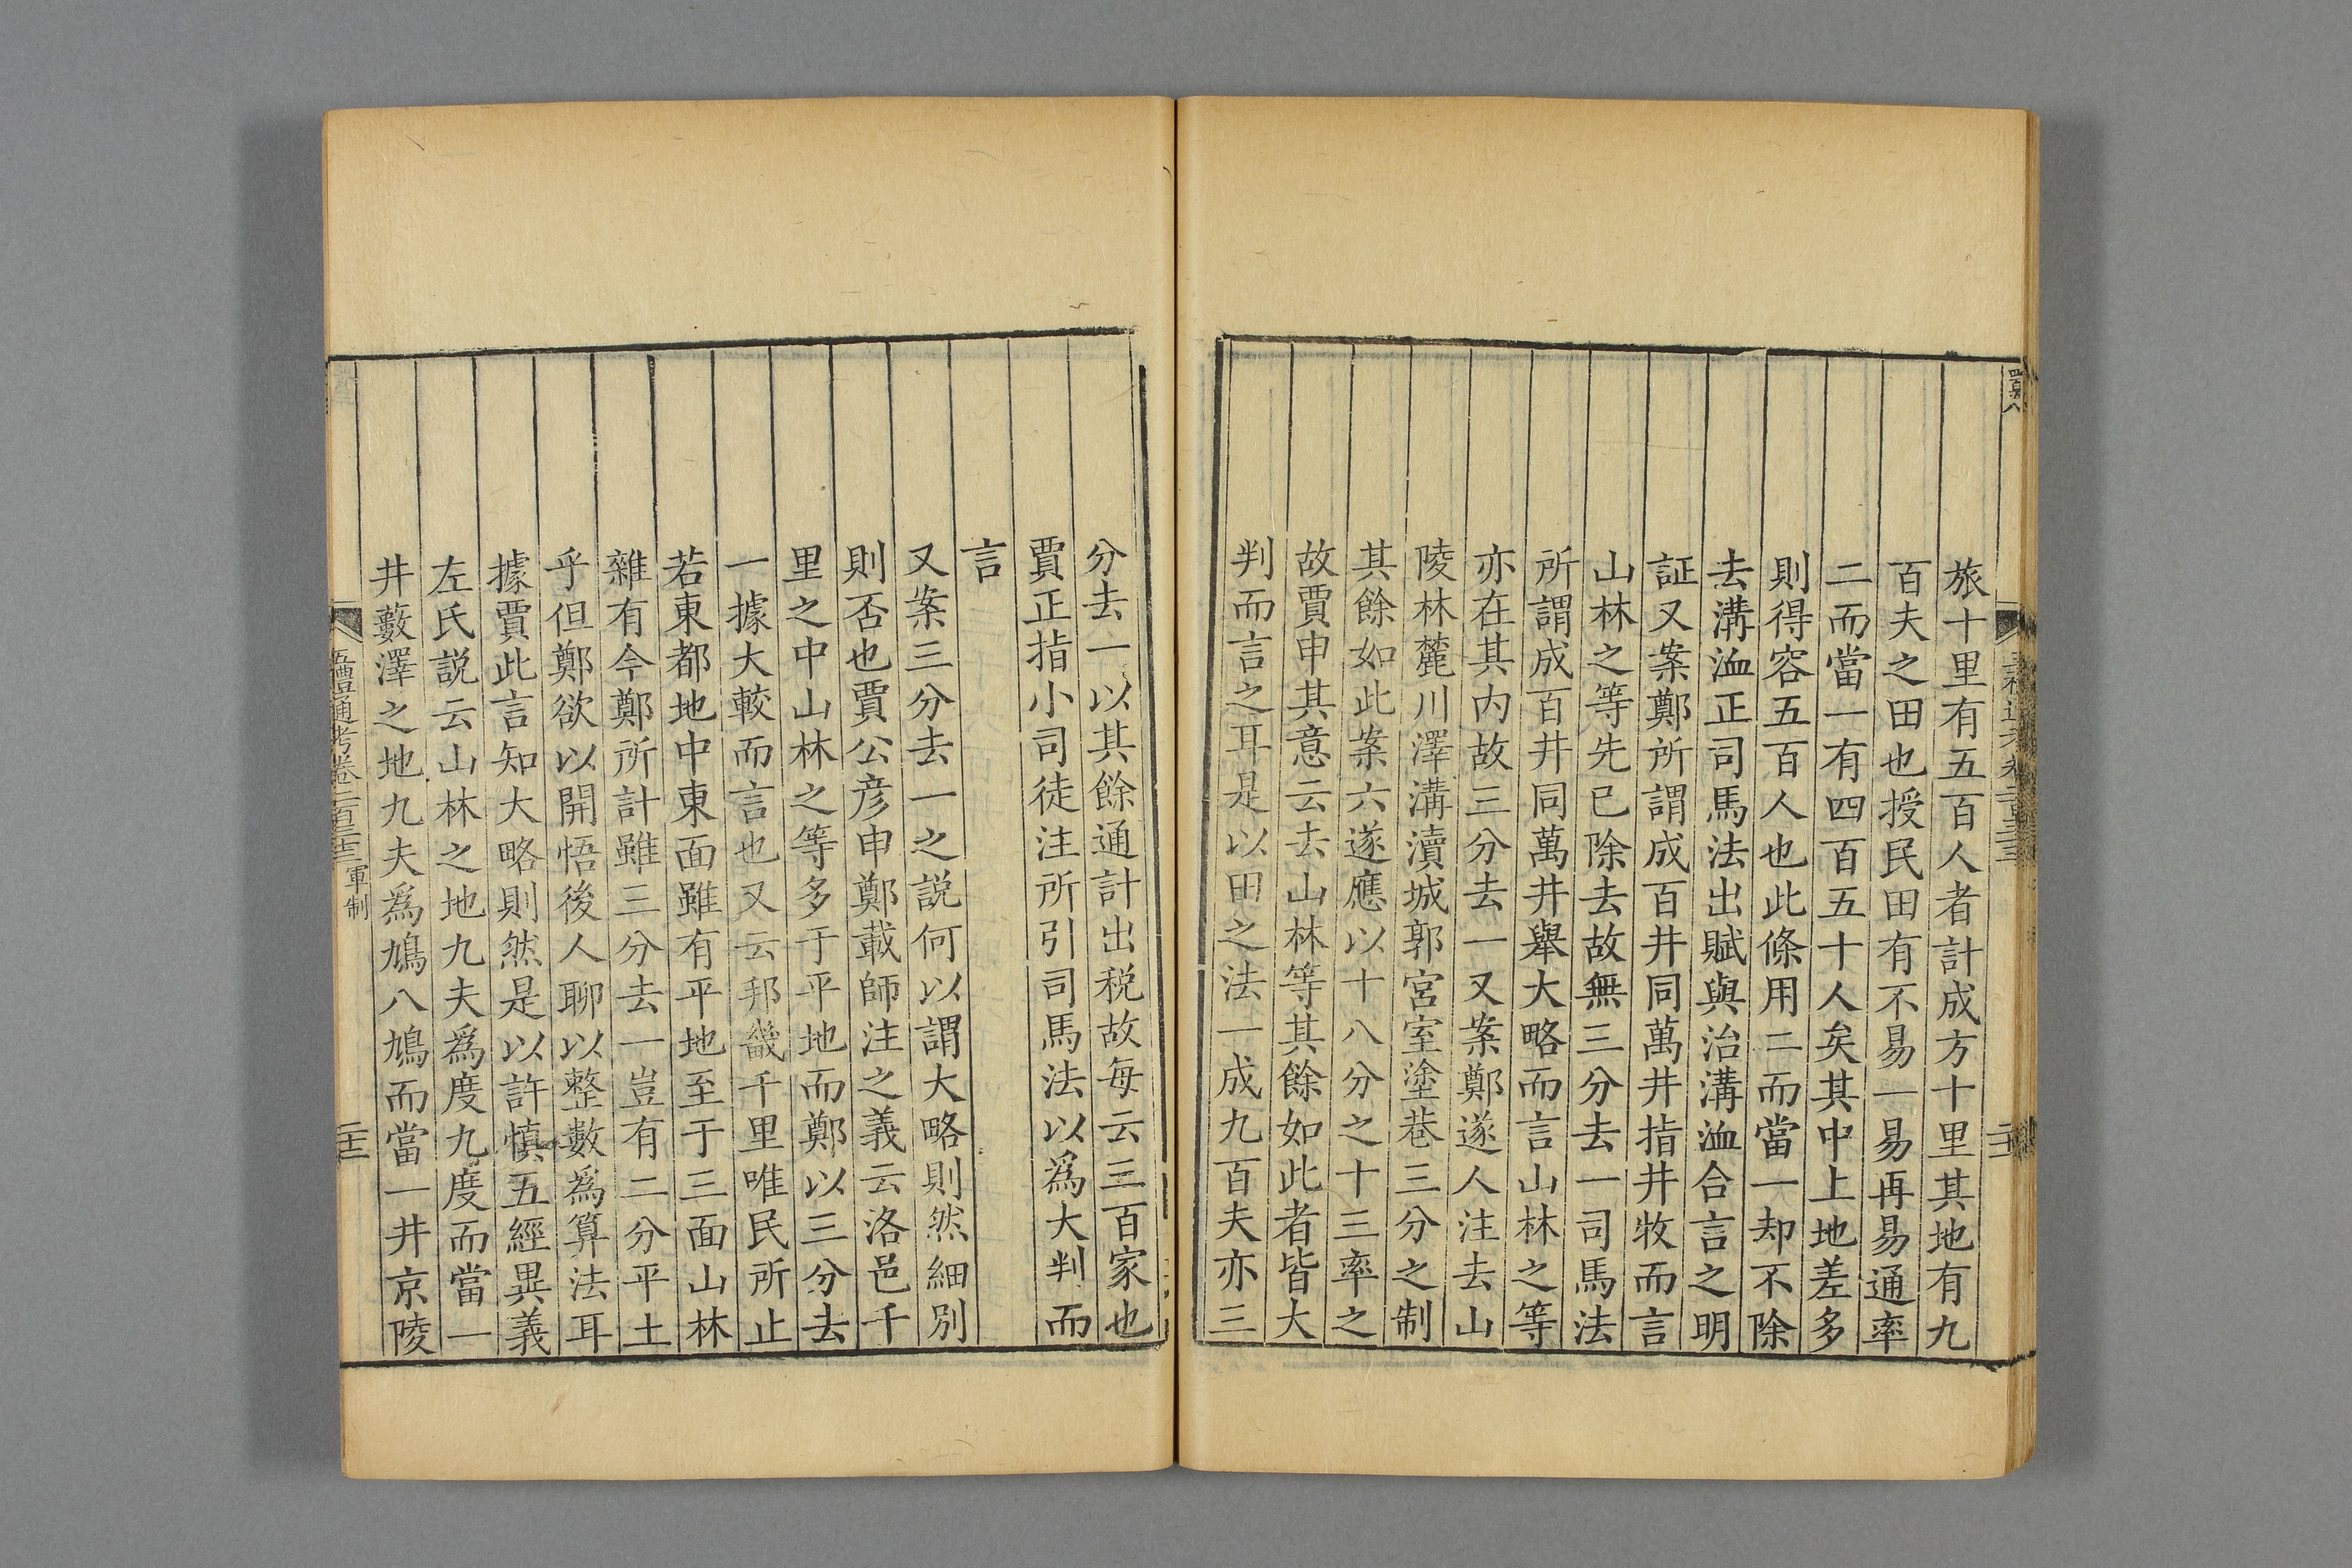 旅十里有五百人者計成方十里其地有九
百夫之田也授民田有不易一易再易通率
二而當一有四百五十人矣其中上地差多
則得容五百人也此條用二而當一却不除
去溝洫正司馬法出賦與治溝洫合言之明
証又案鄭所謂成百井同萬井指井牧而言
山林之等先已除去故無三分去一司馬法
所謂成百井同萬井舉大略而言山林之等
亦在其内故三分去一又案鄭遂人注去山
陵林麓川澤溝瀆城郭宮室塗巷三分之制
其餘如此案六遂應以十八分之十三率之
故賈申其意云去山林等其餘如此者皆大
判而言之耳是以田之法一成九百夫亦三
分去一以其餘通計出税故每云三百家也
賈正指小司徒注所引司馬法以為大判而
言
又案三分去一之説何以謂大略則然細別
則否也賈公彦申鄭載師注之義云洛邑千
里之中山林之等多于平地而鄭以三分去
一據大較而言也又云邦畿千里唯民所止
若東都地中東面雖有平地至于三面山林
雜有今鄭所計雖三分去一豈有二分平土
乎但鄭欲以開悟後人聊以整數為算法耳
據賈此言知大略則然是以許慎五經異義
左氏説云山林之地九夫為度九度而當一
井藪澤之地九夫為鳩八鳩而當一井京陵
五禮通考卷二百三十三 軍制